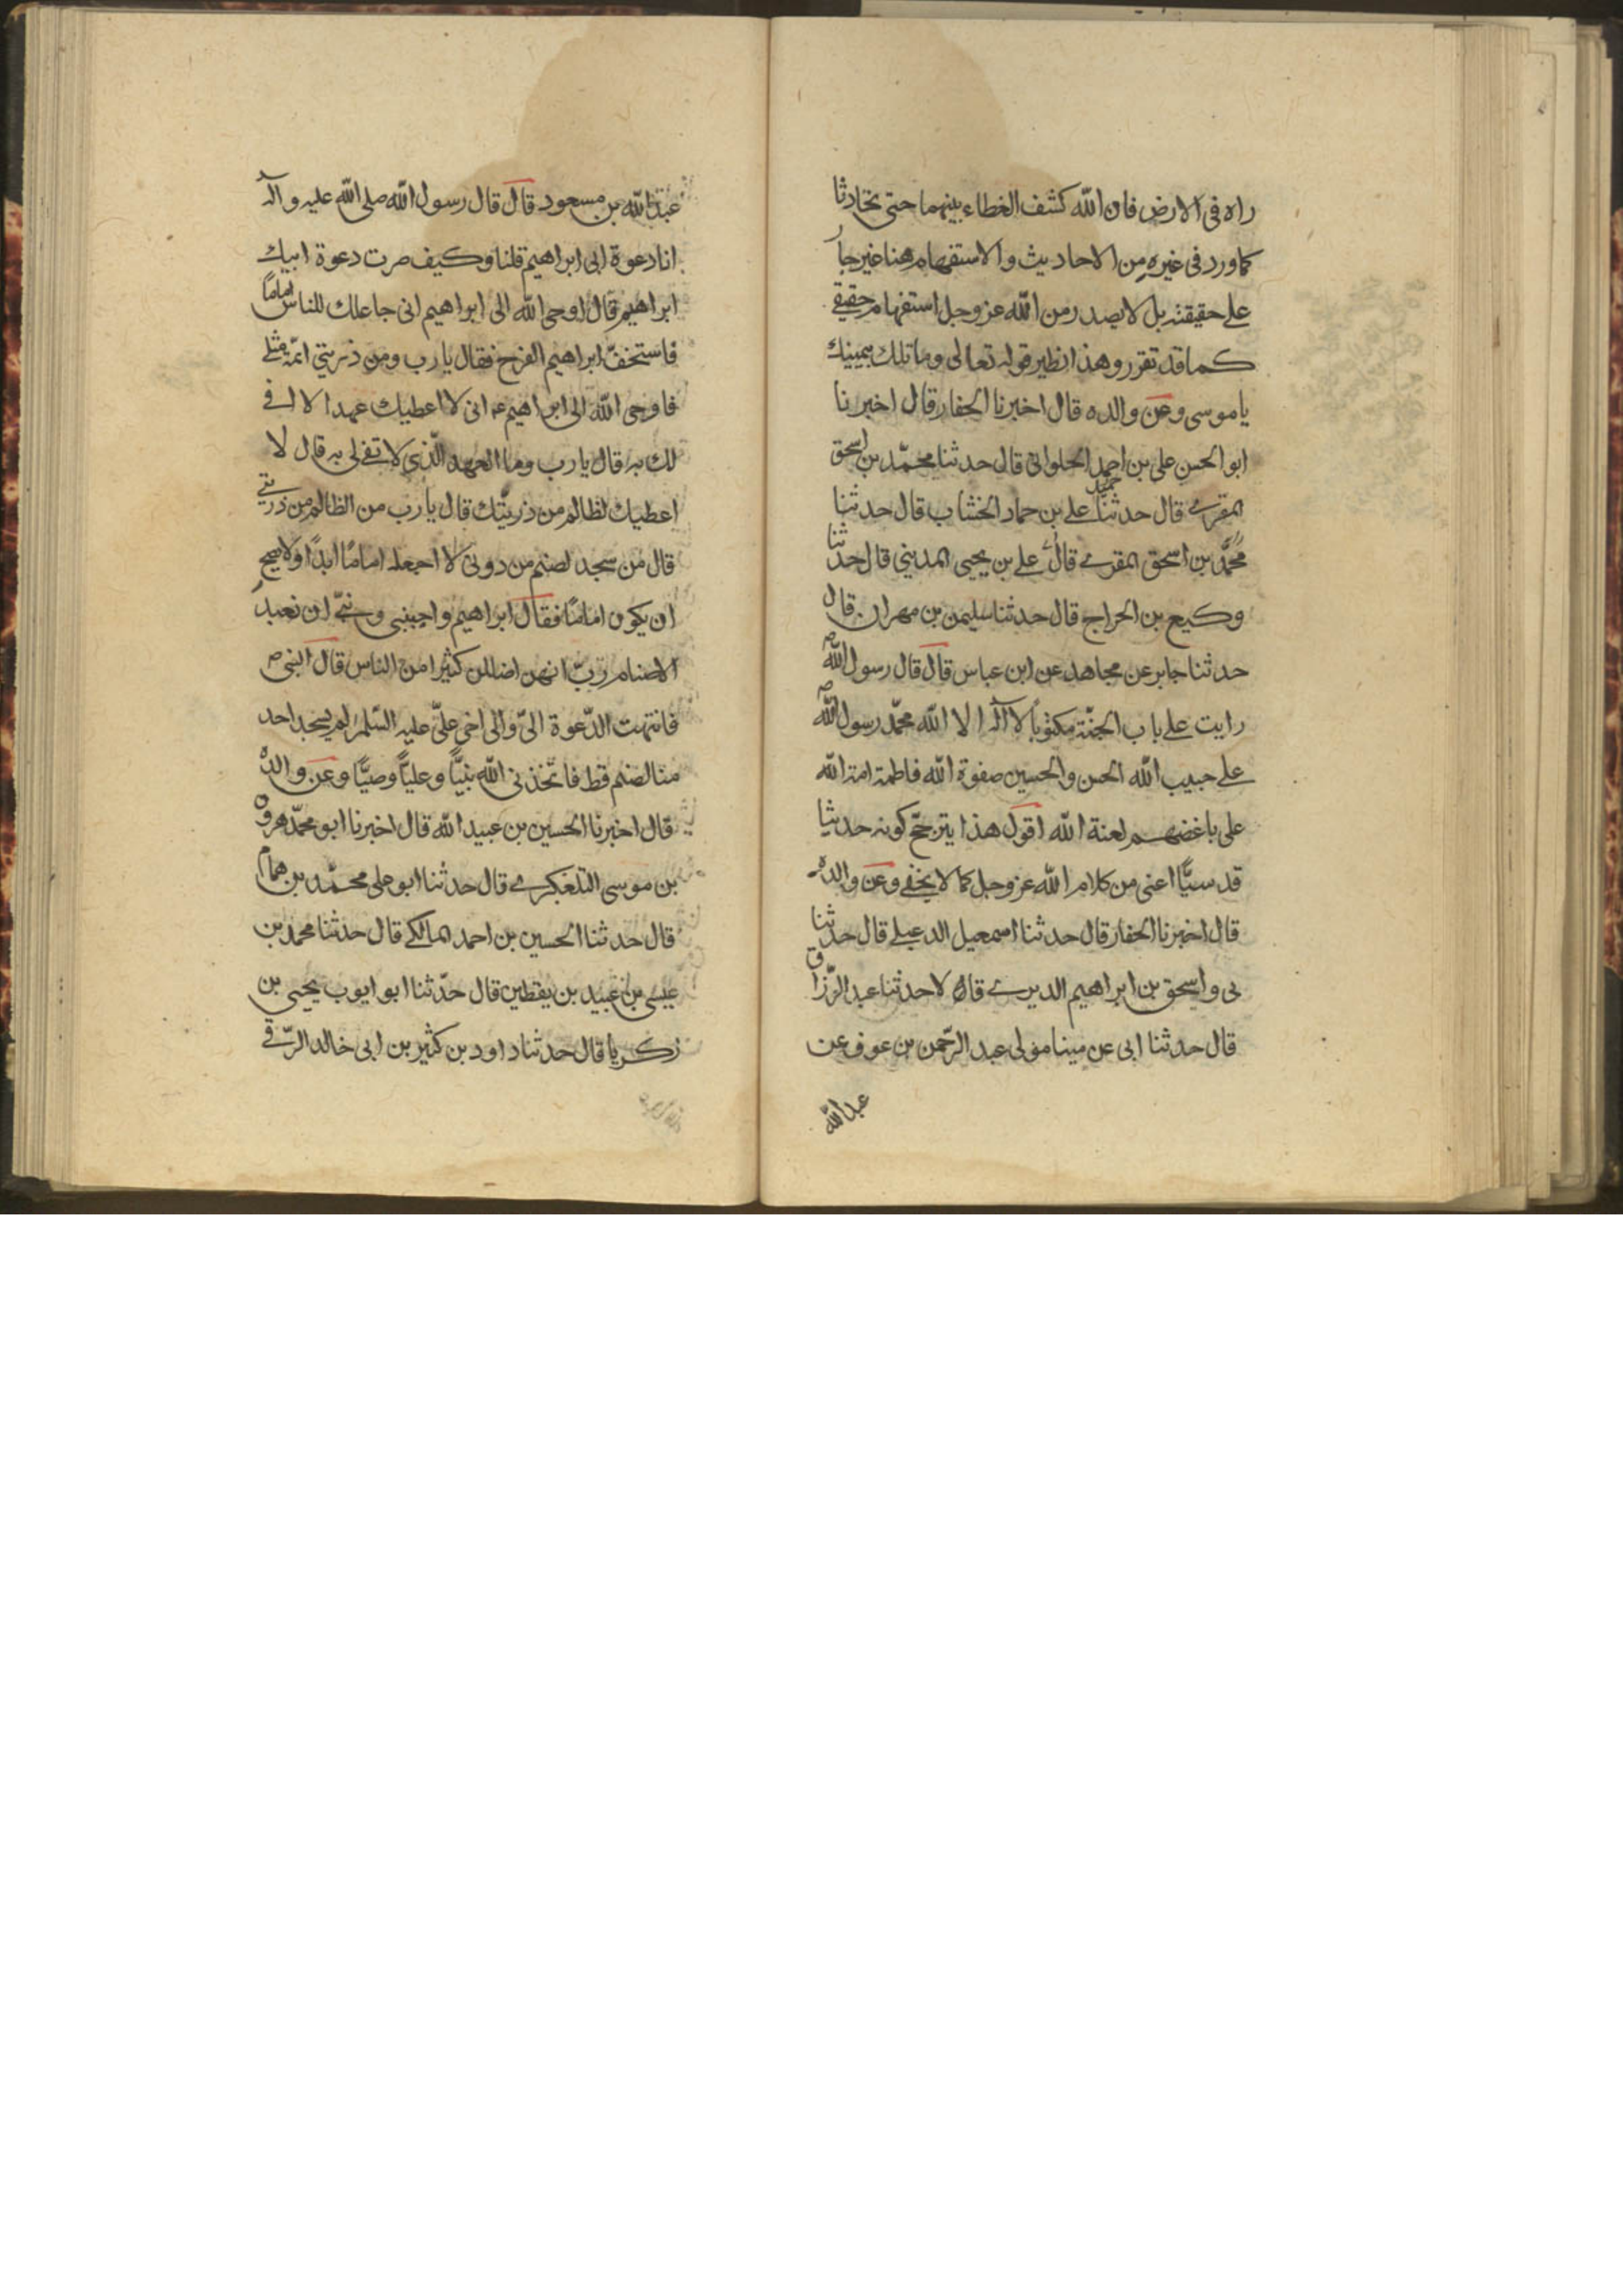 راه فى الارض فان الله كشف الغطاء بينهما حتى تحادثا
كما ورد فى غيره من الاحاديث والاستفهام هنا غير جار
على حقيقته بل لا يصدر من الله عز وجل استفهام حقيقے
كما قد تقرر وهذا نظير قوله تعالى وما تلك بيمينك
يا موسى وعن والده قال اخبرنا الحفار قال اخبرنا
ابو الحسن على بن احمد الحلوانى قال حدثنا محمّد بن اسحق
المقرے قال حدثنا على بن حماد الخشاب قال حدثنا
محمّد بن اسحق المقرے قال على بن يحيى المدينى قال حدثنا
وكيع بن الجراح قال حدثنا سليمن بن مهران قال
حدثنا جابر عن مجاهد عن ابن عباس قال قال رسول الله ص
رايت على باب الجنّة مكتوباً لا اله الا الله محمّد رسول الله ص
على حبيب الله الحسن والحسين صفوة الله فاطمة امة الله
على باغضهم لعنة الله اقول هذا يترجّح كونه حديثا
قدسيّا اعنى من كلام الله عز وجل كما لا يخفے وعن والده
قال اخبرنا الحفار قال حدثنا اسمعيل الدعبلے قال حدثنا
بى واسحق بن ابراهيم الديرے قالا حدثنا عبد الرّزاق
قال حدثنا ابى عن مينا مولى عبد الرّحمن بن عوف عن
عبد الله
عبد الله بن مسعود قال قال رسول الله صلى الله عليه واله
انا دعوة ابى ابراهيم قلنا وكيف صرت دعوة ابيك
ابراهيم قال اوحى الله الى ابراهيم انى جاعلك للناس اماماً
فاستخفّ ابراهيم الفرح فقال يا رب ومن ذريتى ائمّة مثلے
فاوحى الله الى ابراهيم ع انى لا اعطيك عهدا لا افے
لك به قال يا رب وما العهد الّذى لا تفے لى به قال لا
اعطيك لظالم من ذريّتك قال يا رب من الظالم من ذريتے
قال من سجد لصنم من دونى لا اجعله اماما ابدًا ولا يصح
ان يكون امامًا فقال ابراهيم واجنبنى وبنيّ ان نعبد
الاصنام ربّ انهن اضللن كثيرا من الناس قال النبى ص
فانتهت الدّعوة الىّ والى اخى علىّ عليه السّلم لم يسجد احد
منا لصنم قط فاتّخذنى الله نبيًّا وعليًّا وصيًّا وعن والده
قال اخبرنا الحسين بن عبيد الله قال اخبرنا ابو محمّد هرون
بن موسى التلعكبرے قال حدثنا ابو على محمّد بن همام
قال حدثنا الحسين بن احمد المالكے قال حدثنا محمد بن
عيسى بن عبيد بن يقطين قال حدّثنا ابو ايوب يحيى بن
زكريا قال حدثنا داود بن كثير بن ابى خالد الرّقے